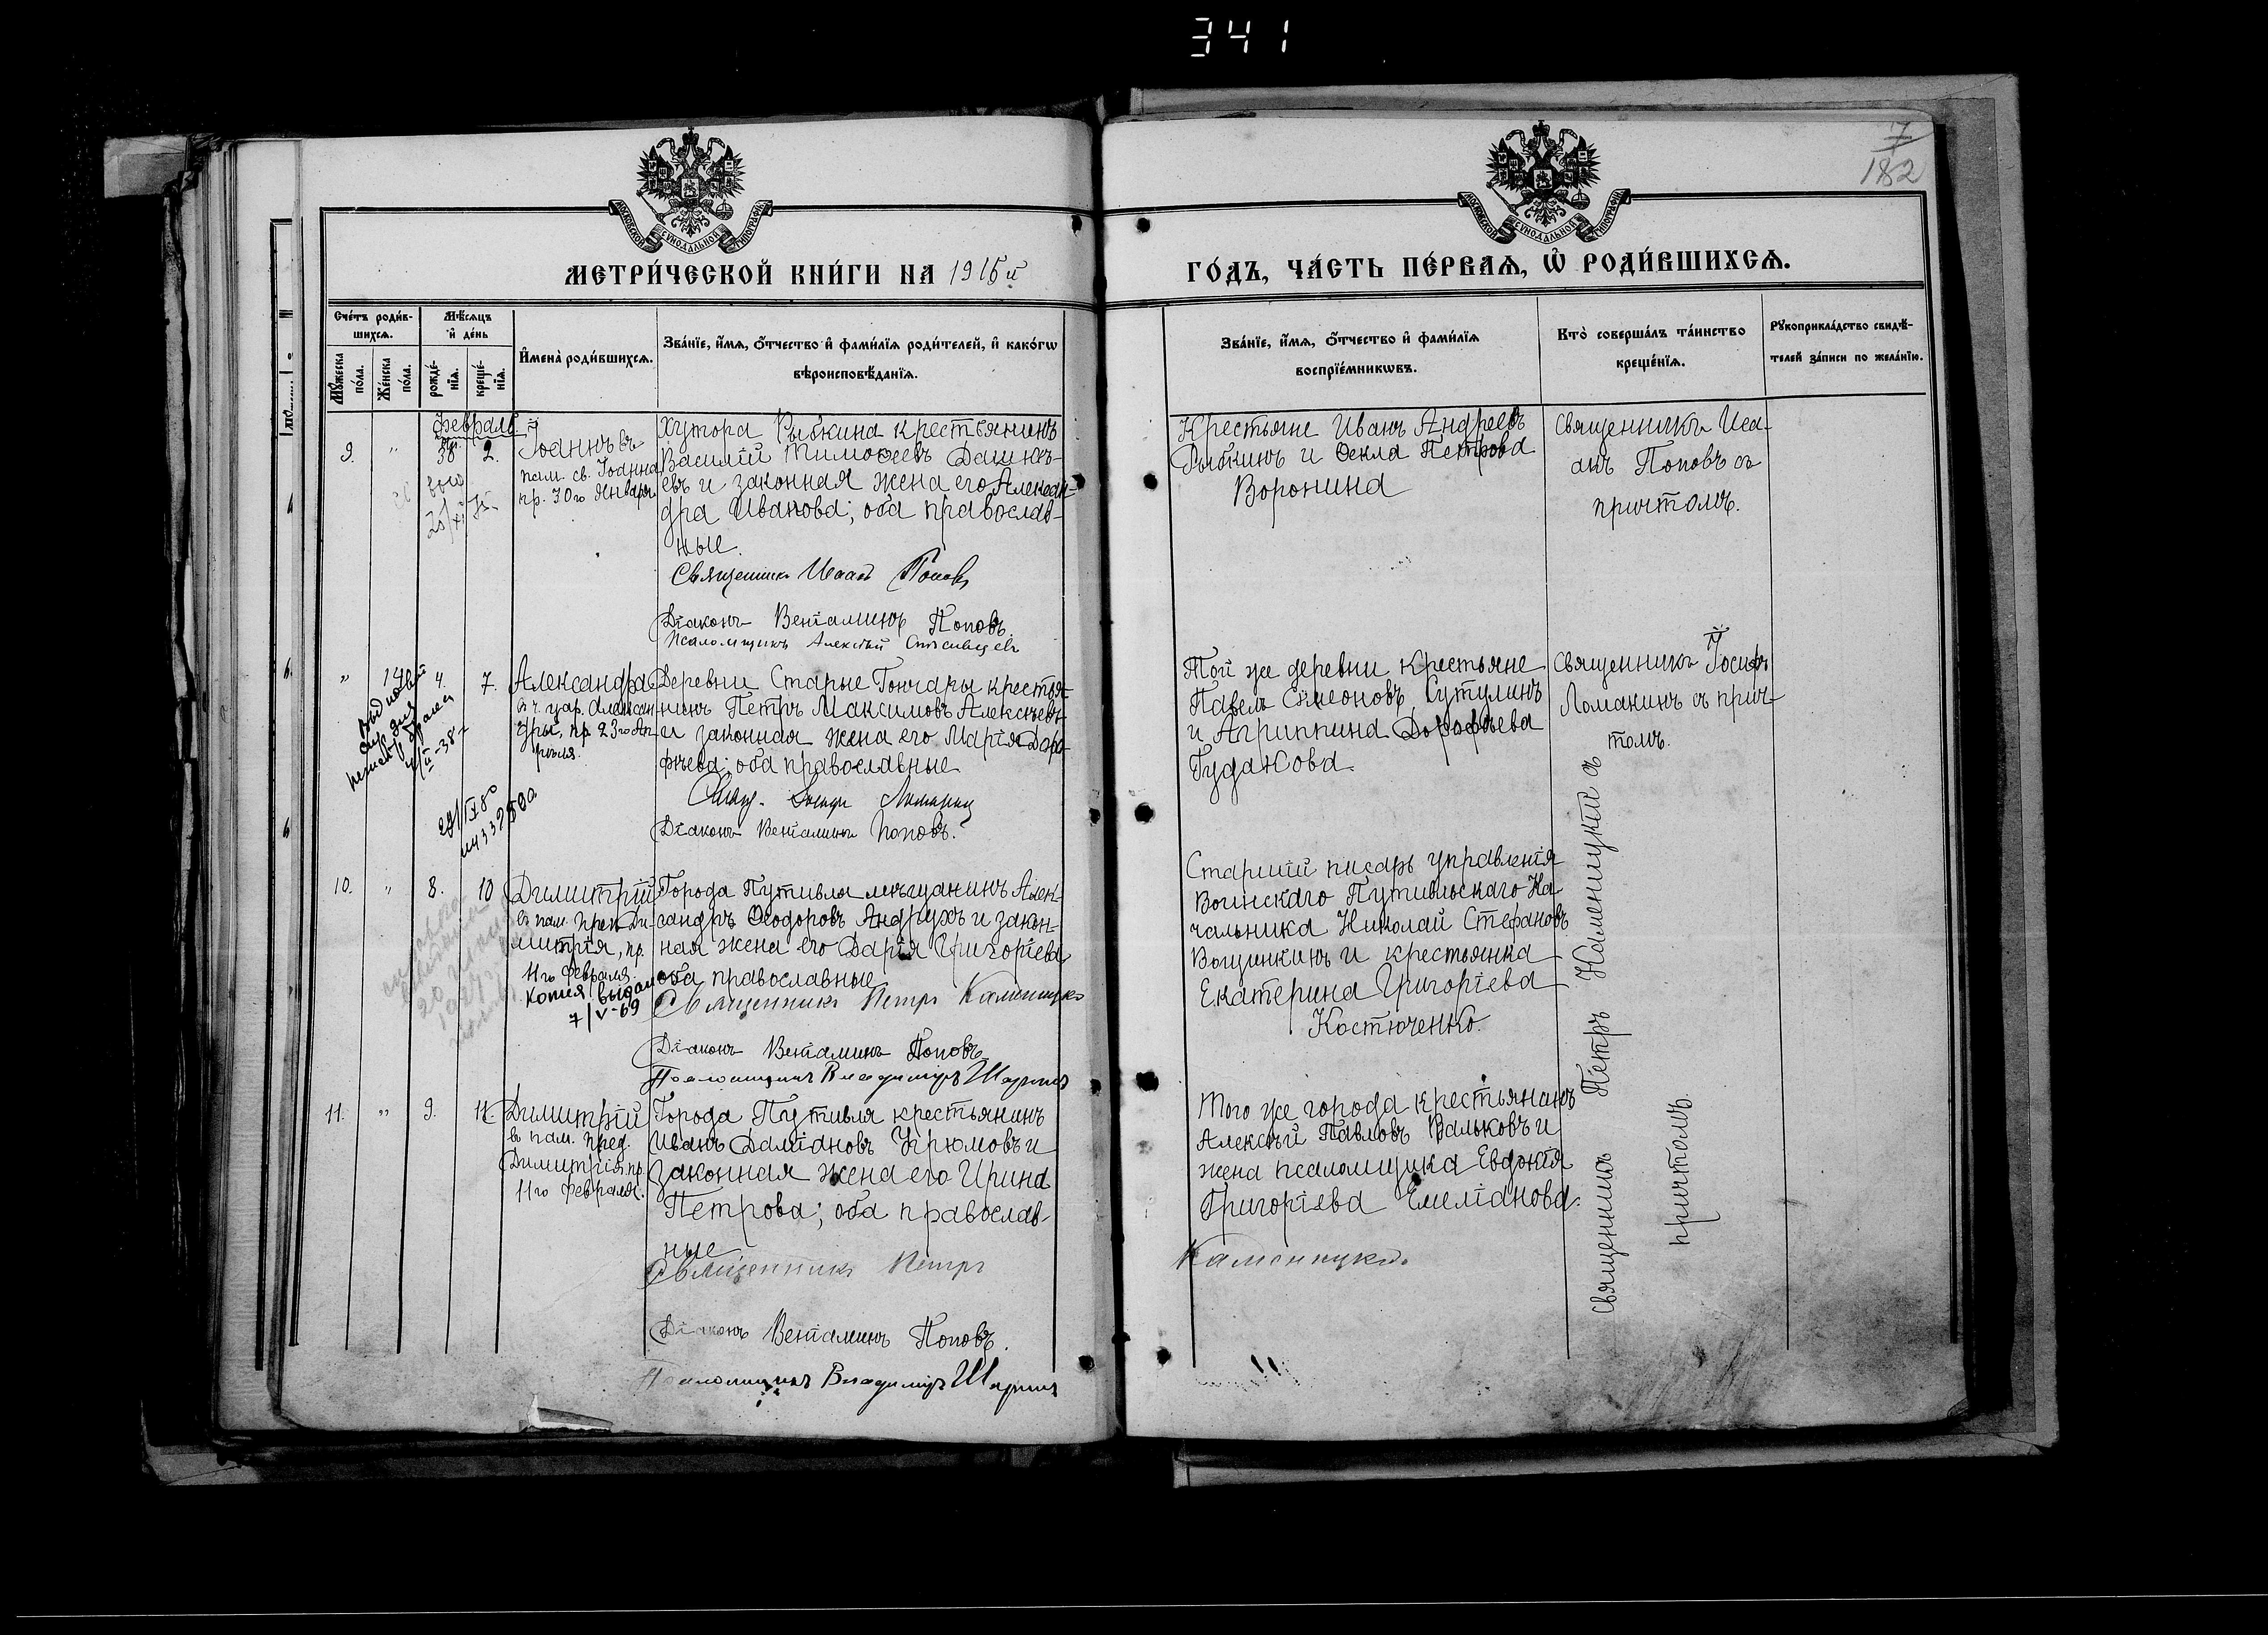 341
7
182
МОСКОВСКОЙ СУНОДАЛЬНОЙ ТИПОГРАФІИ
МОСКОВСКОЙ СУНОДАЛЬНОЙ ТИПОГРАФІИ
МЕТРИ́ЧЕСКОЙ КНИ́ГИ НА 1915й
ГО́ДЪ, ЧА́СТЬ ПЕ́РВАѦ, Ѡ҆ РОДИ́ВШИХСѦ.
Сче́тъ роди́в-
шихсѧ.
Мѣ́сѧцъ
и҆ де́нь
Мꙋ́жеска
по́ла.
Же́нска
по́ла.
рожде́-
нїѧ.
креще́-
нїѧ.
И҆мена̀ роди́вшихсѧ.
Зва́нїе, и҆́мѧ, ѻ҆́тчество и҆ фами́лїѧ роди́телей, и҆ како́гѡ
вѣроисповѣ́данїѧ.
Зва́нїе, и҆́мѧ, ѻ҆́тчество и҆ фами́лїѧ
воспрїе́мникѡвъ.
Кто̀ соверша́лъ та́инство
креще́нїѧ.
Рꙋкоприкла́дство свидѣ́-
телей за́писи по жела́нїю.
Февраль
9.
"
2.
Іоаннъ въ
пам. св. Іоанна
пр. 30го Января
Хутора Рыбкина крестьянинъ
Василій Тимоѳеевъ Дашкѣ-
евъ и законная жена его Алексан-
дра Иванова; оба православ-
ные.
Священникъ Исаакъ Поповъ
Діаконъ Веніаминъ Поповъ.
Псаломщикъ Алексѣй
Крестьяне Иванъ Андреевъ
Рыбкинъ и Ѳекла Петрова
Воронина
Священникъ Иса-
акъ Поповъ съ
причтомъ.
"
14
4.
7.
Александра
въ ч. цар. Алексан
дры, пр. 23го Ап
рѣля.
Деревни Старые Гончары крестья-
нинъ Петръ Максимовъ Алексѣевъ
и законная жена его Марія Доро-
фѣева; оба православные
Свящ. Іосифъ Ломакинъ
Діаконъ Веніаминъ Поповъ.
Той же деревни крестьяне
Павелъ Симеоновъ Сутулинъ
и Агриппина Дорофѣева
Гудакова.
Священникъ Іосифъ
Ломакинъ съ прич-
томъ.
II-38
10.
"
8.
10
Димитрій
въ пам. Преп. Ди-
митрія, пр.
11го февраля.
Копия выдана
7/V-69
Города Путивля мѣщанинъ Алек-
сандръ Ѳеодоровъ Андрухъ и закон-
ная жена его Дарія Григоріева
оба православные
Священникъ Петръ Каменицкій
Діаконъ Веніаминъ Поповъ.
Псаломщикъ Владиміръ Шаринъ
Старшій писарь управленія
Воинскаго Путивльскаго На-
чальника Николай Стефановъ
Вощинкинъ и крестьянка
Екатерина Григоріева
Костюченко.
Священникъ Петръ Каменицкій съ
причтомъ.
11.
"
9.
11.
Димитрій
въ пам. преп.
Димитрія, пр.
11го февраля.
Города Путивля крестьянинъ
Иванъ Даміановъ Угрюмовъ и
законная жена его Ирина
Петрова; оба православ-
ные
Священникъ Петръ
Каменицкій.
Діаконъ Веніаминъ Поповъ.
Псаломщикъ Владиміръ Шаринъ
Того же города крестьянинъ
Алексѣй Павловъ Вальковъ и
жена псаломщика Евдокія
Григоріева Емеліанова.